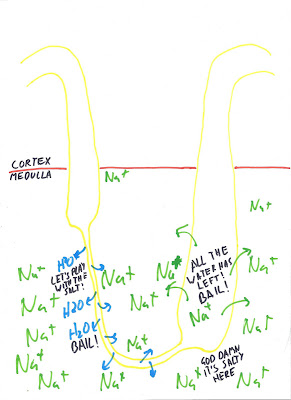 CORTEX
MEDULLA
Na+
Na+
H2O
LET'S PLAY
WITH THE
SALT!
Na+
Na+
Na+
ALL THE
WATER HAS
LEFT!
BAIL!
Na+
Na+
H2O
Na+
Na+
Na+
H2O
BAIL!
Na+
Na+
Na+
GOD DAMN
IT'S SALTY
HERE
Na+
Na+
Na+
Na+
Na+